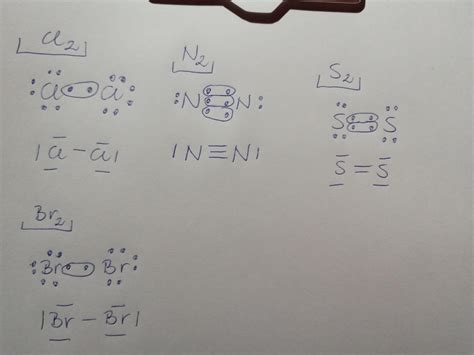 Cl₂
:Cl : Cl:
|Cl – Cl|
N₂
:N ⋮⋮ N:
|N ≡ N|
S₂
S :: S
S = S
Br₂
:Br : Br:
|Br – Br|